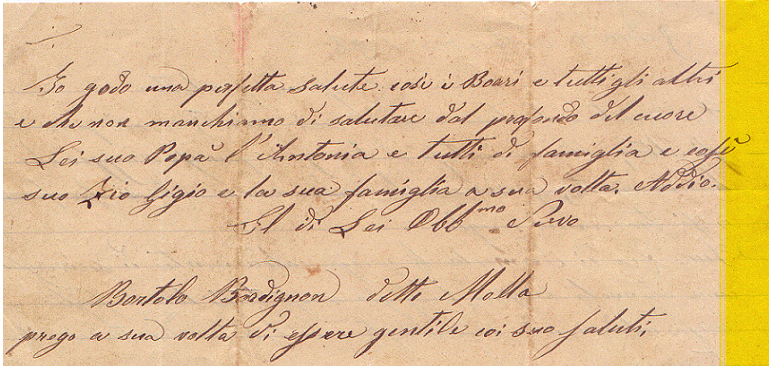 Io godo una perfetta salute così i Boari e tutti gli altri
e che non manchiamo di salutare dal profondo del cuore
Lei suo Papà l'Antonia e tutti di famiglia e così
suo Zio Gigio e la sua famiglia a sua volta. Addio.
Il di Lei Obb^mo Servo
Bortolo Bordignon detto Molla
prego a sua volta di essere gentile coi suo saluti,